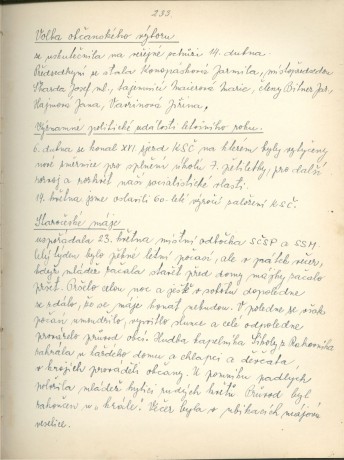 233
Volba občanského výboru
se uskutečnila na veřejné schůzi 14. dubna.
Předsedkyní se stala Konopásková Jarmila, místopředsedou
Škarda Josef ml., tajemnicí Maierová Marie, členy Bitner Jar.
Hajmová Jana, Vavřinová Jiřina,
Významné politické události letošního roku.
6. dubna se konal XVI sjezd KSČ na kterém byly vytýčeny
nové směrnice pro splnění úkolů 7. pětiletky, pro další
rozvoj a rozkvět naší socialistické vlasti.
14. května jsme oslavili 60-leté výročí založení KSČ.
Staročeské máje
uspořádala 23. května místní odbočka SČSP a SSM
Celý týden bylo pěkné letní počasí, ale v pátek večer,
když mládež začala stavět před domy májky začalo
pršet. Pršelo celou noc a ještě v sobotu dopoledne
se zdálo, že se máje konat nebudou. V poledne se však
počasí umoudřilo, vysvitlo slunce a celé odpoledne
provázelo průvod obcí. Hudba kapelníka Siboly z Rakovníka
zahrála u každého domu a chlapci a děvčata
v krojích prováděli občany. U pomníku padlých
položila mládež kytici rudých květů. Průvod byl
zakončen u "krále". Večer byla v místních májová
veselice.